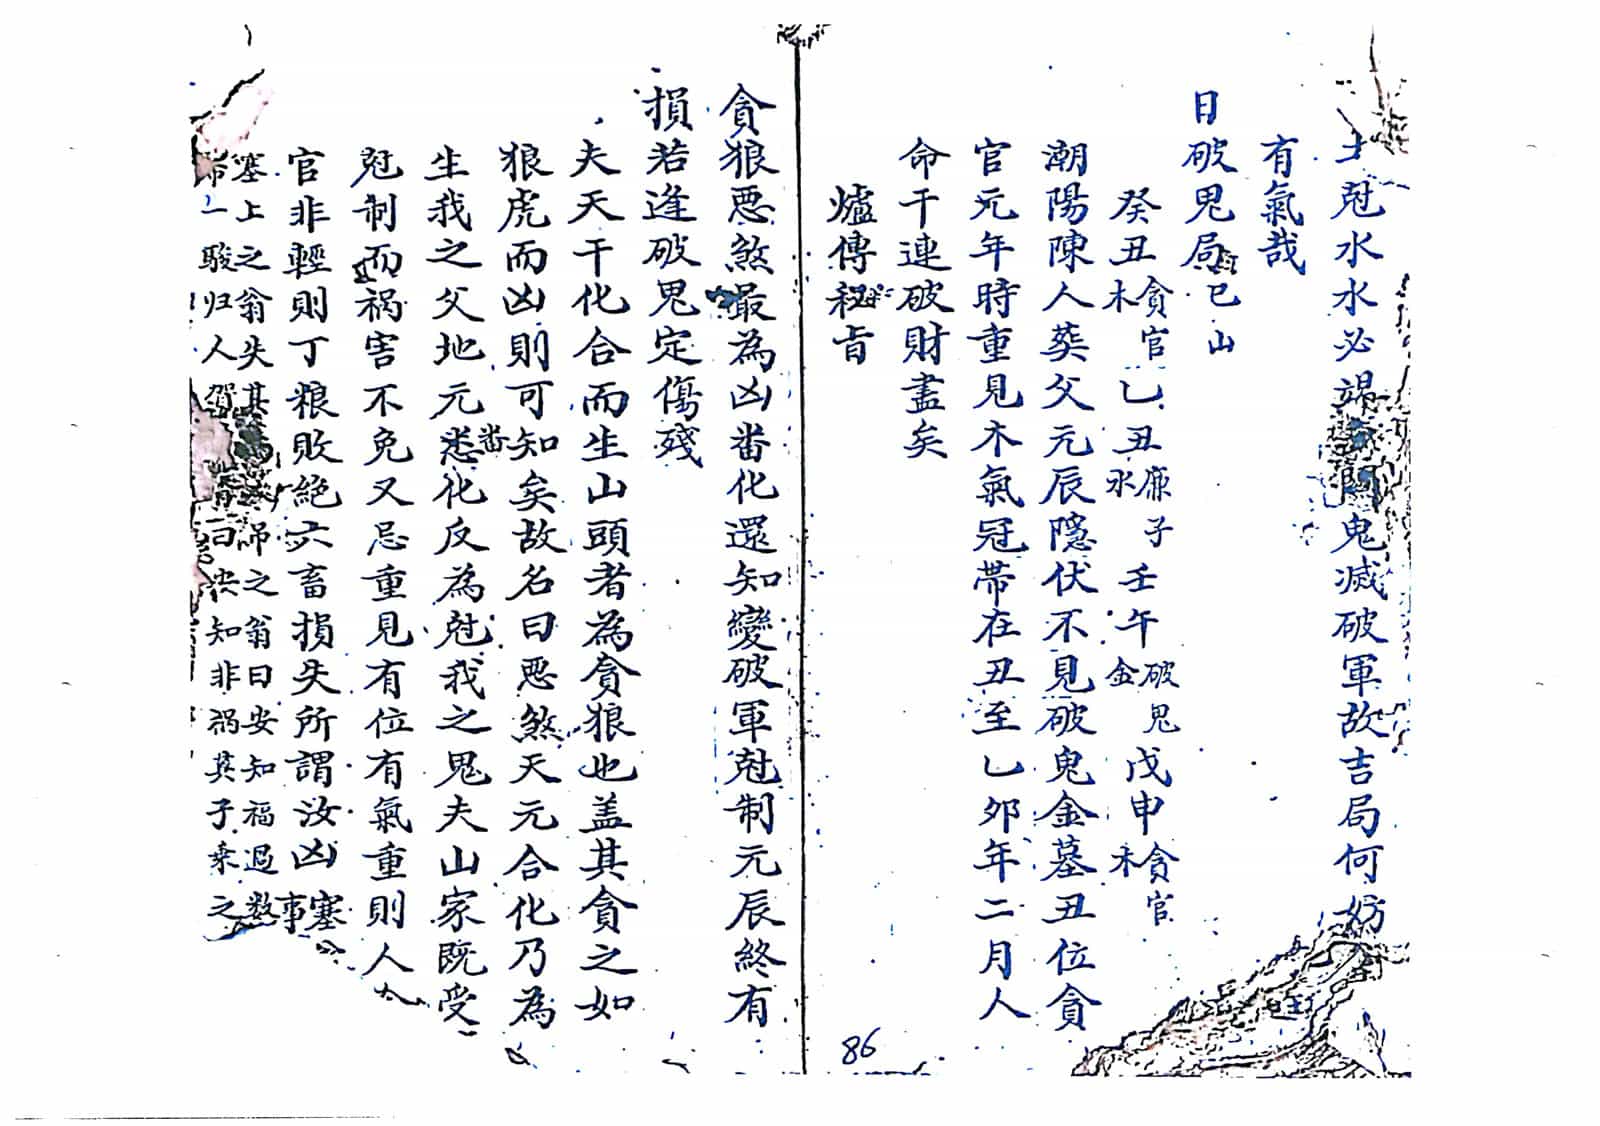 土尅水水必竭鬼滅破軍故吉局何妨
有氣哉
日破鬼局巳山
癸丑木貪官乙丑水廉子壬午金破鬼戊申木貪官
潮陽陳人葬父元辰隱伏不見破鬼金墓丑位貪
官元年時重見木氣冠帶在丑至乙卯年二月人
命干連破財盡矣
爐傳秘旨
86
貪狼惡煞最為凶番化還知變破軍尅制元辰終有
損若逢破鬼定傷殘
夫天干化合而生山頭者為貪狼也盖其貪之如
狼虎而凶則可知矣故名曰惡煞天元合化乃為
生我之父地元悉番化反為尅我之鬼夫山家既受
尅制而禍害不免又忌重見有位有氣重則人
官非輕則丁粮敗絕六畜損失所謂汝凶事塞
塞上之翁失其馬 帰之翁曰安知福過数
一駿归人賀 曰决知非禍其子乘之